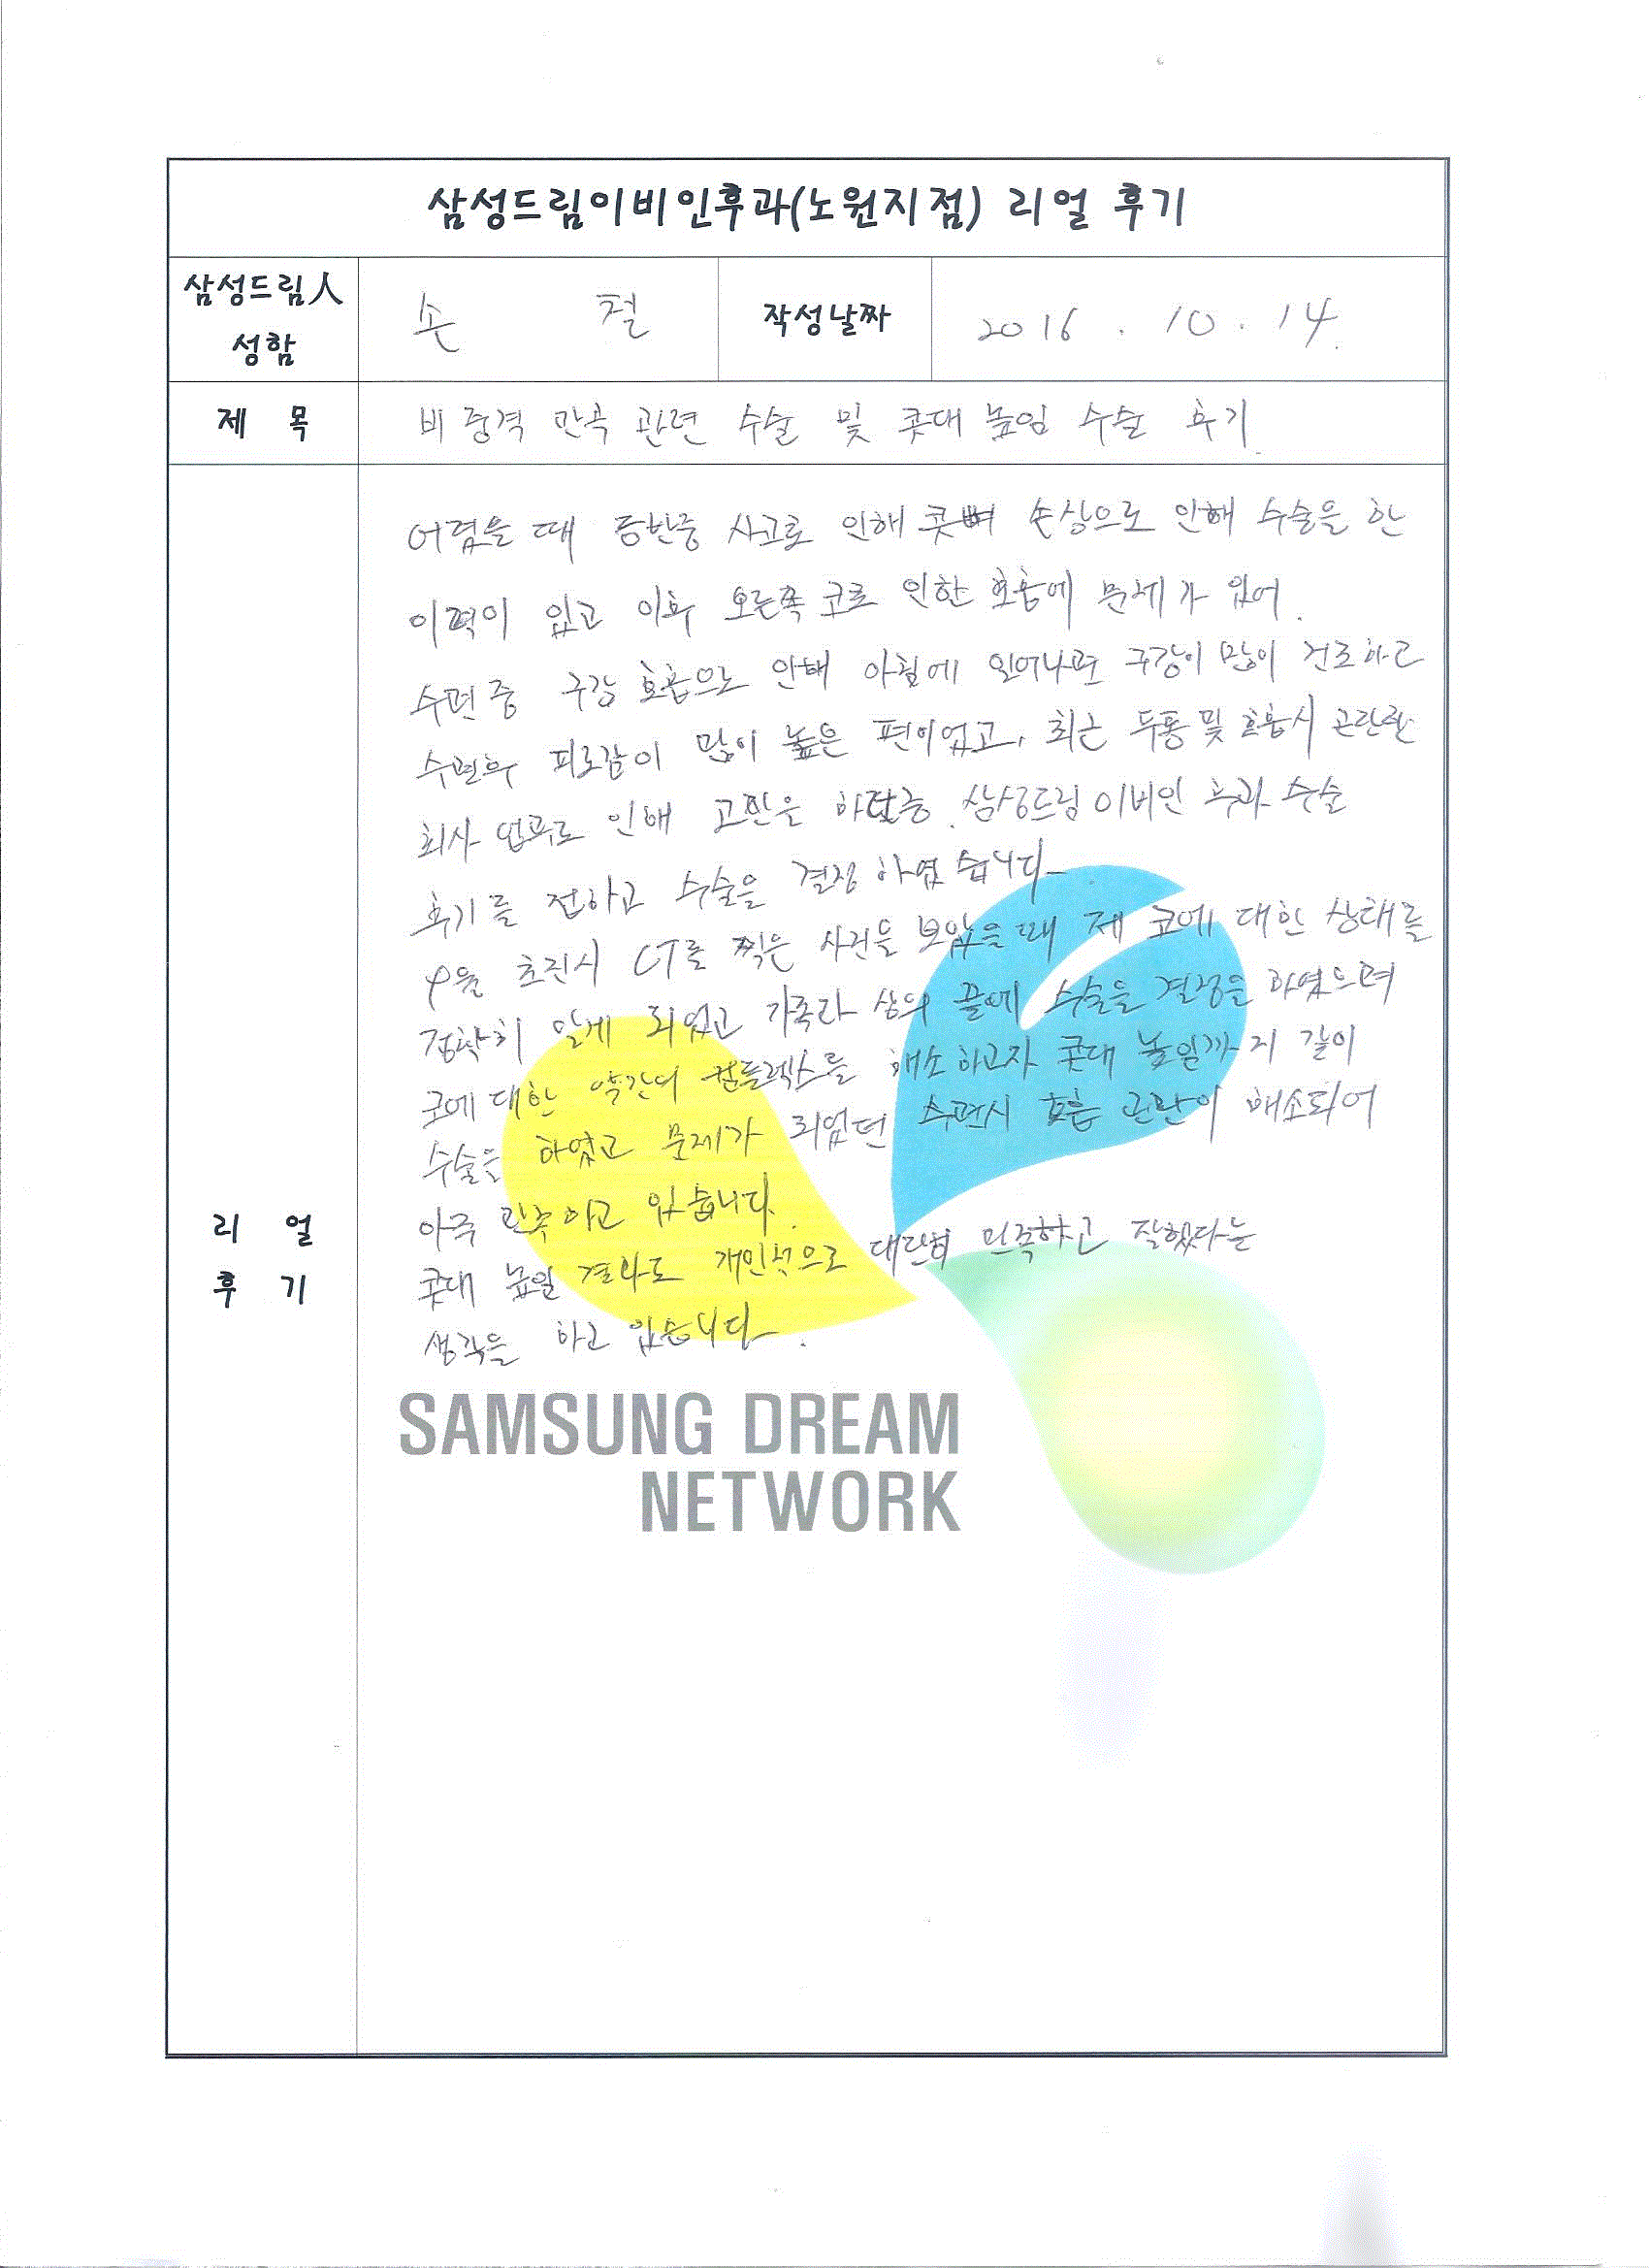 삼성드림이비인후과(노원지점) 리얼 후기
삼성드림人 성함
손 철
작성날짜
2016. 10. 14.
제 목
비중격 만곡 관련 수술 및 콧대 높임 수술 후기
리 얼
후 기
어렸을 때 등한중 사고로 인해 콧뼈 손상으로 인해 수술을 한
이력이 있고 이후 오른쪽 코로 인한 호흡에 문제가 있어.
수면중 구강 호흡으로 인해 아침에 일어나면 구강이 많이 건조하고
수면후 피로감이 많이 높은 편이었고, 최근 두통 및 호흡시 곤란한
회사 업무로 인해 고민을 하던중 삼성드림이비인 후과 수술
후기를 접하고 수술을 결정 하였습니다.
초진시 CT를 찍은 사진을 보았을때 제 코에 대한 상태를
정확히 알게 되었고 가족과 상의 끝에 수술을 결정을 하였으며
코에 대한 약간의 컴플렉스를 해소하고자 콧대 높임까지 같이
수술을 하였고 문제가 되었던 수면시 호흡 곤란이 해소되어
아주 만족하고 있습니다.
콧대 높임 결과도 개인적으로 대단히 만족하고 잘했다는
생각을 하고 있습니다.
SAMSUNG DREAM
NETWORK